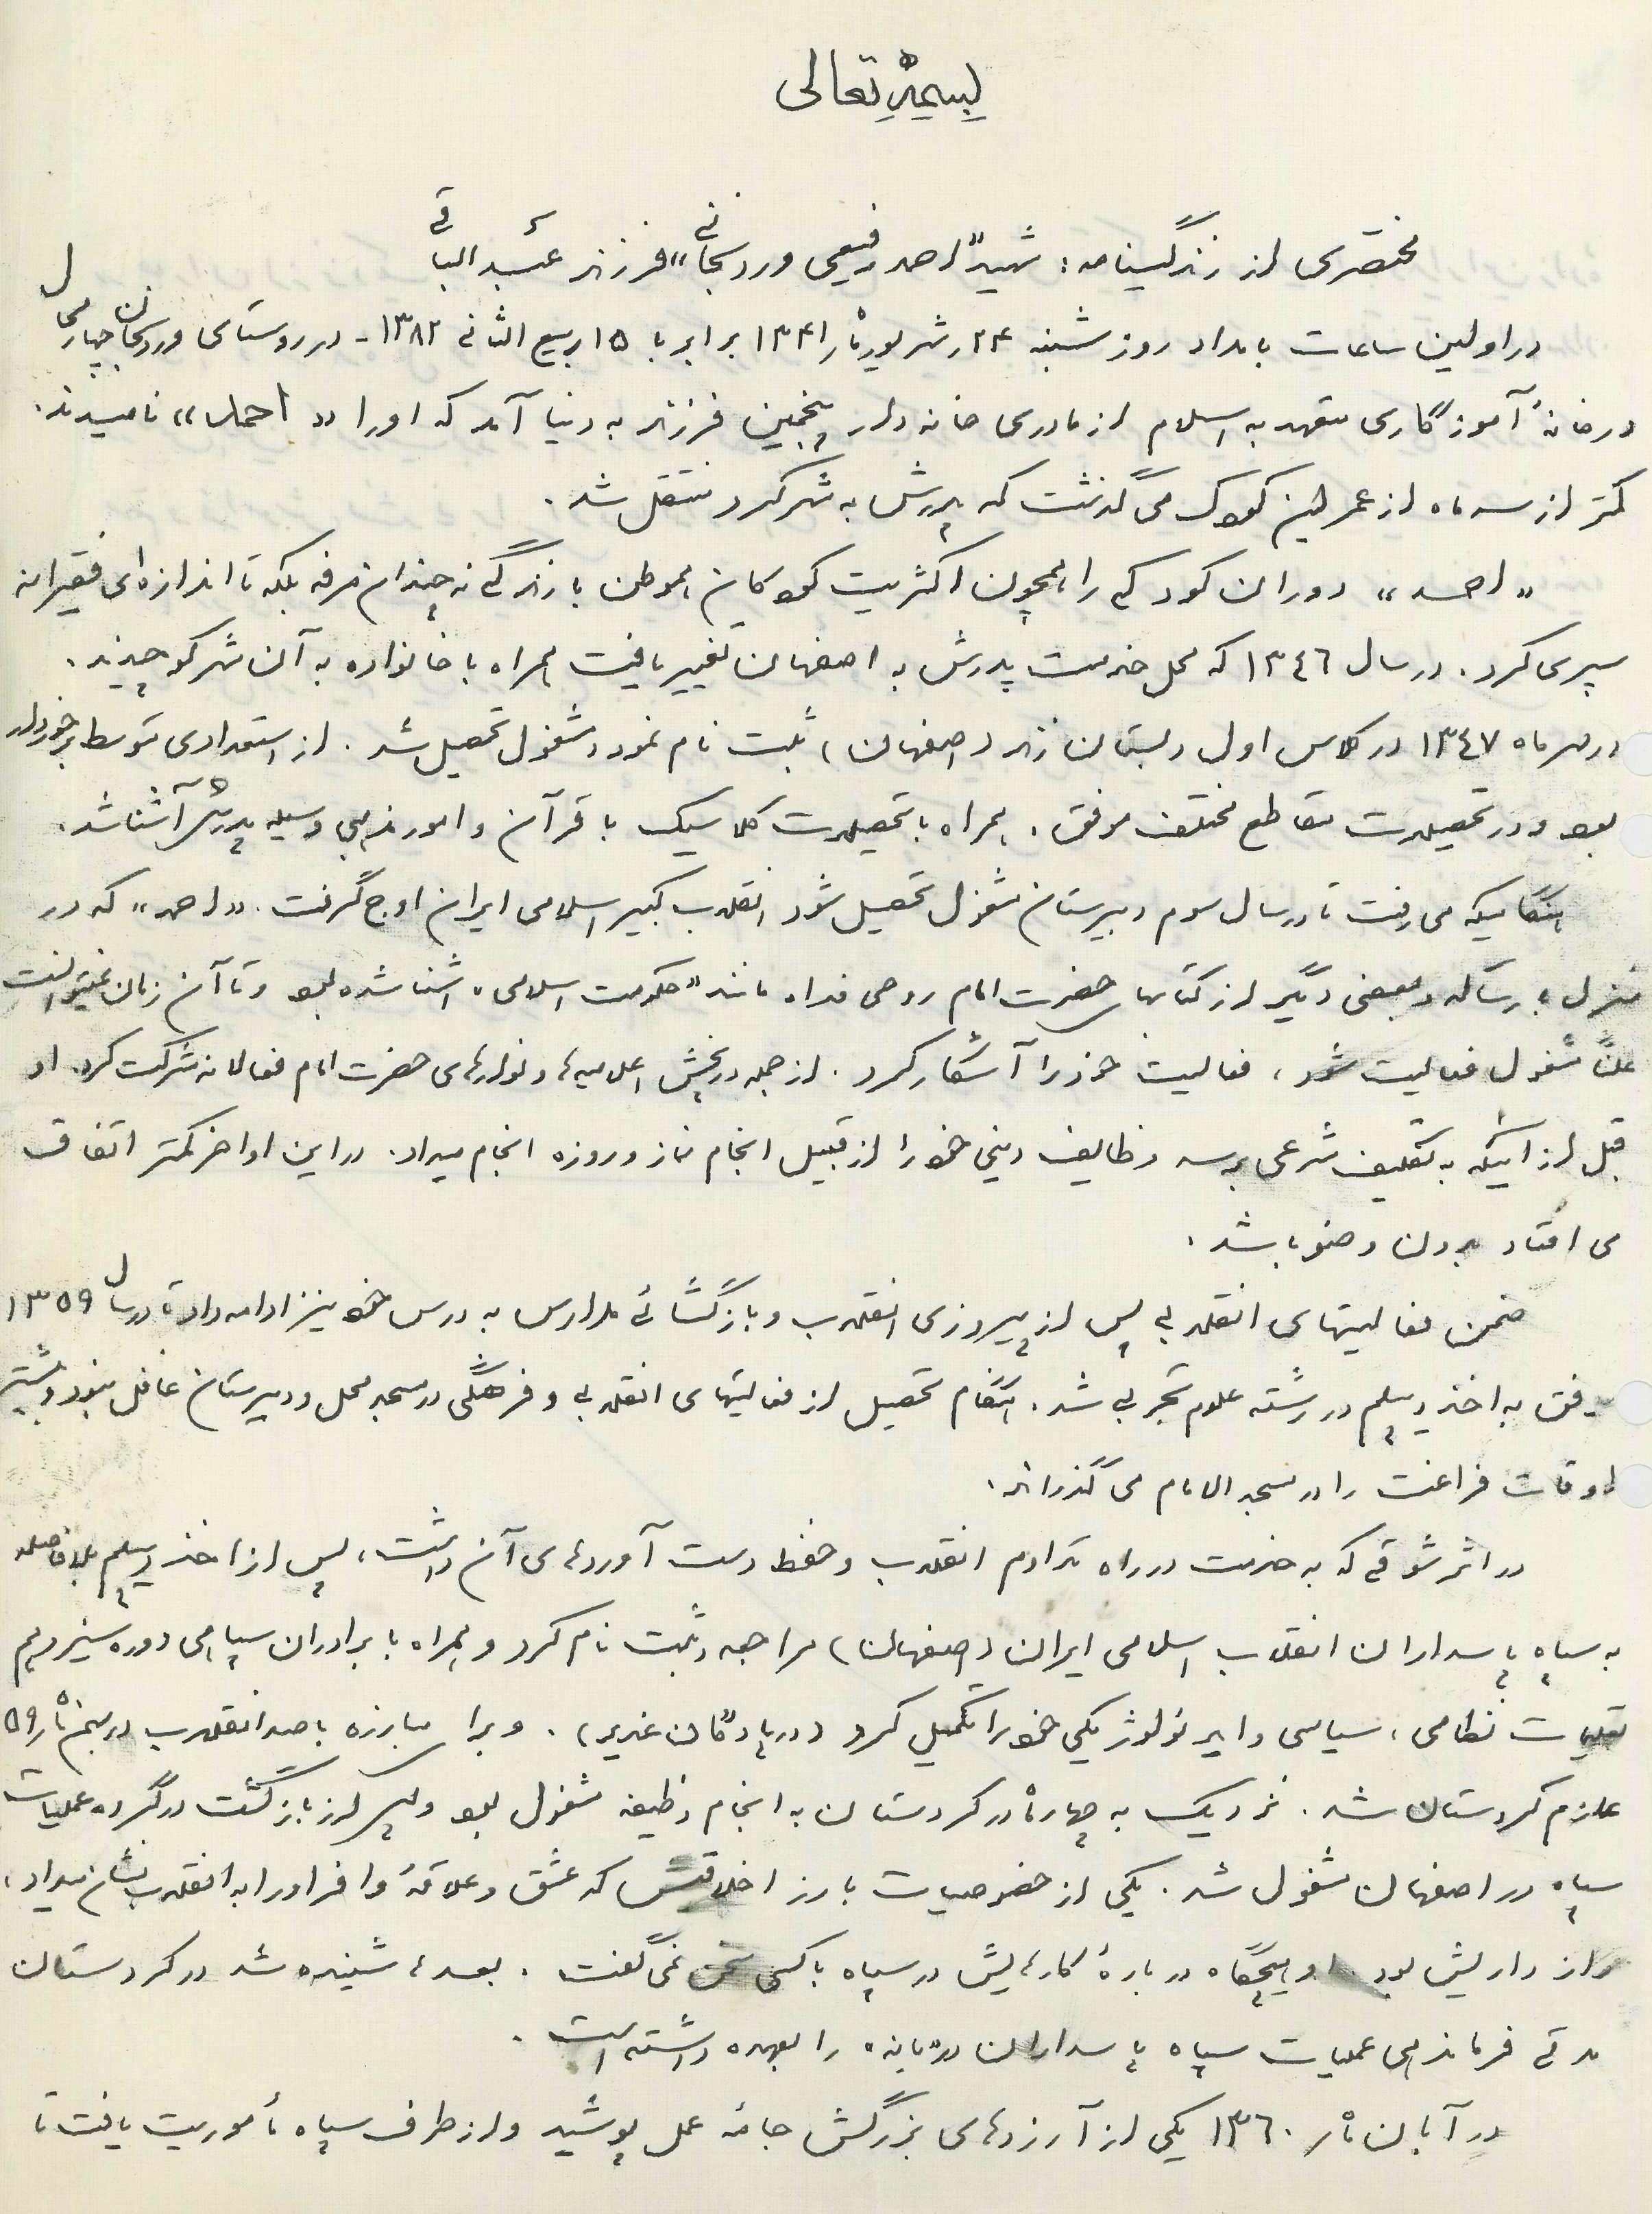 بسمه تعالی
مختصری از زندگینامه: شهید "احمد رفیعی وردنجانی" فرزند عبدالباقی
در اولین ساعات بامداد روز شنبه ۲۴ر شهریور ماه ر ۱۳۴۱ برابر با ۱۵ ربیع الثانی ۱۳۸۲ - در روستای وردنجان چهارمحال
در خانهٔ آموزگاری متعهد به اسلام از مادری خانه دار پنجمین فرزند به دنیا آمد که او را «احمد» نامیدند.
کمتر از سه ماه از عمر این کودک می گذشت که پدرش به شهرکرد منتقل شد.
«احمد» دوران کودکی را همچون اکثریت کودکان هموطن با زندگی نه چندان مرفه بلکه تا اندازه ای فقیرانه
سپری کرد. در سال ۱۳٤٦ که محل خدمت پدرش به اصفهان تغییر یافت همراه با خانواده به آن شهر کوچیدند.
در مهر ماه ۱۳٤۷ در کلاس اول دبستان زند (اصفهان) ثبت نام نمود و مشغول تحصیل شد. از استعدادی متوسط برخوردار
بود و در تحصیلات مقاطع مختلف موفق. همراه با تحصیلات کلاسیک با قرآن و امور مذهبی وسیله پدرش آشنا شد.
هنگامیکه می رفت تا در سال سوم دبیرستان مشغول تحصیل شود انقلاب کبیر اسلامی ایران اوج گرفت. «احمد» که در
منزل با رساله و بعضی دیگر از کتابهای حضرت امام روحی فداه مانند "حکومت اسلامی" آشنا شده بود و تا آن زمان نمیتوانست
علناً مشغول فعالیت شود، فعالیت خود را آشکار کرد. از جمله در پخش اعلامیه ها و نوارهای حضرت امام فعالانه شرکت کرد. او
قبل از اینکه به تکلیف شرعی برسد وظایف دینی خود را از قبیل انجام نماز و روزه انجام میداد. در این اواخر کمتر اتفاق
می افتاد بدون وضو باشد.
ضمن فعالیتهای انقلابی پس از پیروزی انقلاب و بازگشائی مدارس به درس خود نیز ادامه داد تا در سال ۱۳۵۹
موفق به اخذ دیپلم در رشته علوم تجربی شد. هنگام تحصیل از فعالیتهای انقلابی و فرهنگی در مسجد محل و دبیرستان غافل نبود و بیشتر
اوقات فراغت را در مسجد الامام می گذراند.
در اثر شوقی که به خدمت در راه تداوم انقلاب و حفظ دست آوردهای آن داشت، پس از اخذ دیپلم بلافاصله
به سپاه پاسداران انقلاب اسلامی ایران (اصفهان) مراجعه و ثبت نام کرد و همراه با برادران سپاهی دوره سیزدهم
تعلیمات نظامی، سیاسی و ایدئولوژیکی خود را تکمیل کرد (در پادگان غدیر). و برای مبارزه با ضد انقلاب در بهمن ماه ر ۵۹
عازم کردستان شد. نزدیک به چهار ماه در کردستان به انجام وظیفه مشغول بود و پس از بازگشت در گروه عملیات
سپاه در اصفهان مشغول شد. یکی از خصوصیات بارز اخلاقیش که عشق و علاقهٔ وافر او را به انقلاب نشان میداد،
رازداریش بود. او هیچگاه دربارهٔ کارهایش در سپاه با کسی سخن نمی گفت. بعدها شنیده شد در کردستان
مدتی فرماندهی عملیات سپاه پاسداران در "بانه" را بعهده داشته است.
در آبان ماه ر ۱۳٦۰ یکی از آرزوهای بزرگش جامهٔ عمل پوشید و از طرف سپاه مأموریت یافت تا